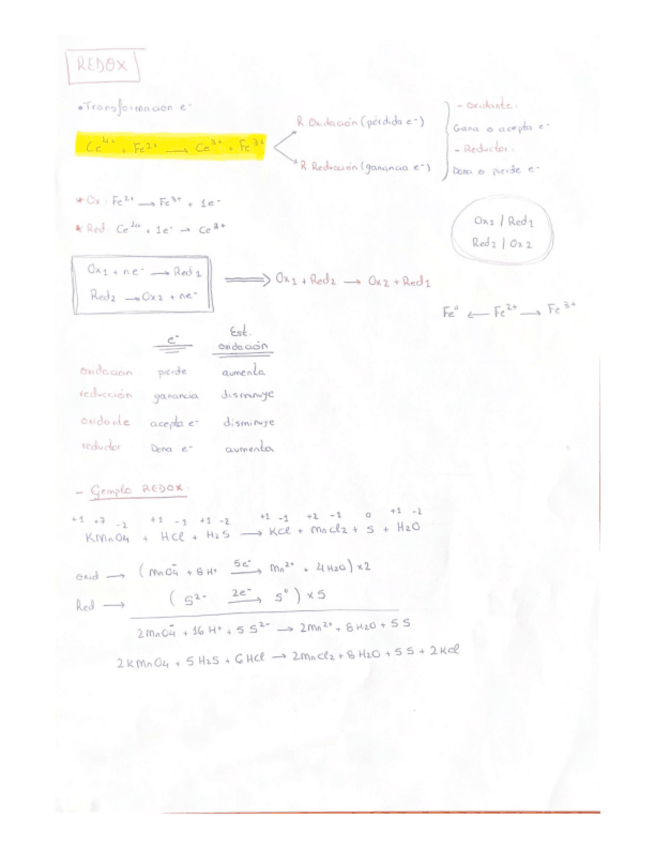 REDOX
• Transformación e⁻
Ce⁴⁺ + Fe²⁺ → Ce³⁺ + Fe³⁺
R. Oxidación (pérdida e⁻)
R. Reducción (ganancia e⁻)
- Oxidante:
Gana o acepta e⁻
- Reductor:
Dona o pierde e⁻
* Ox: Fe²⁺ → Fe³⁺ + 1e⁻
* Red: Ce⁴⁺ + 1e⁻ → Ce³⁺
Ox1 / Red1
Red2 / Ox2
Ox1 + ne⁻ → Red1
Red2 → Ox2 + ne⁻
⟹ Ox1 + Red2 → Ox2 + Red1
Fe⁰ ← Fe²⁺ → Fe³⁺
e⁻ Est. oxidación
oxidación pierde aumenta
reducción ganancia disminuye
oxidante acepta e⁻ disminuye
reductor Dona e⁻ aumenta
- Ejemplo REDOX:
+1 +7 -2 +1 -1 +1 -2 +1 -1 +2 -1 0 +1 -2
KMnO4 + HCl + H2S → KCl + MnCl2 + S + H2O
oxid → (MnO4⁻ + 8H⁺ 5e⁻→ Mn²⁺ + 4H2O) x2
Red → (S²⁻ 2e⁻→ S⁰) x5
2MnO4⁻ + 16H⁺ + 5S²⁻ → 2Mn²⁺ + 8H2O + 5S
2KMnO4 + 5H2S + 6HCl → 2MnCl2 + 8H2O + 5S + 2KCl